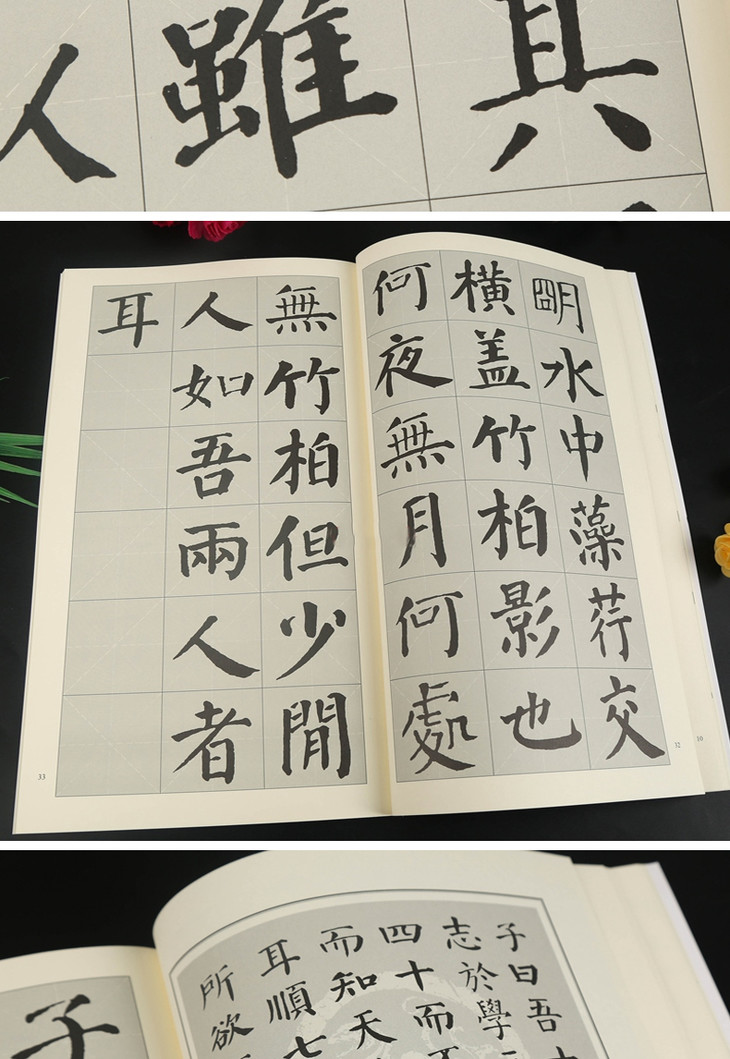 其
雖
人
明水中藻荇交
橫盖竹柏影也
何夜無月何處
無竹柏但少閒
人如吾兩人者
耳
32
10
33
子曰吾
志於學
四十而
而知天
耳順七
所欲
子